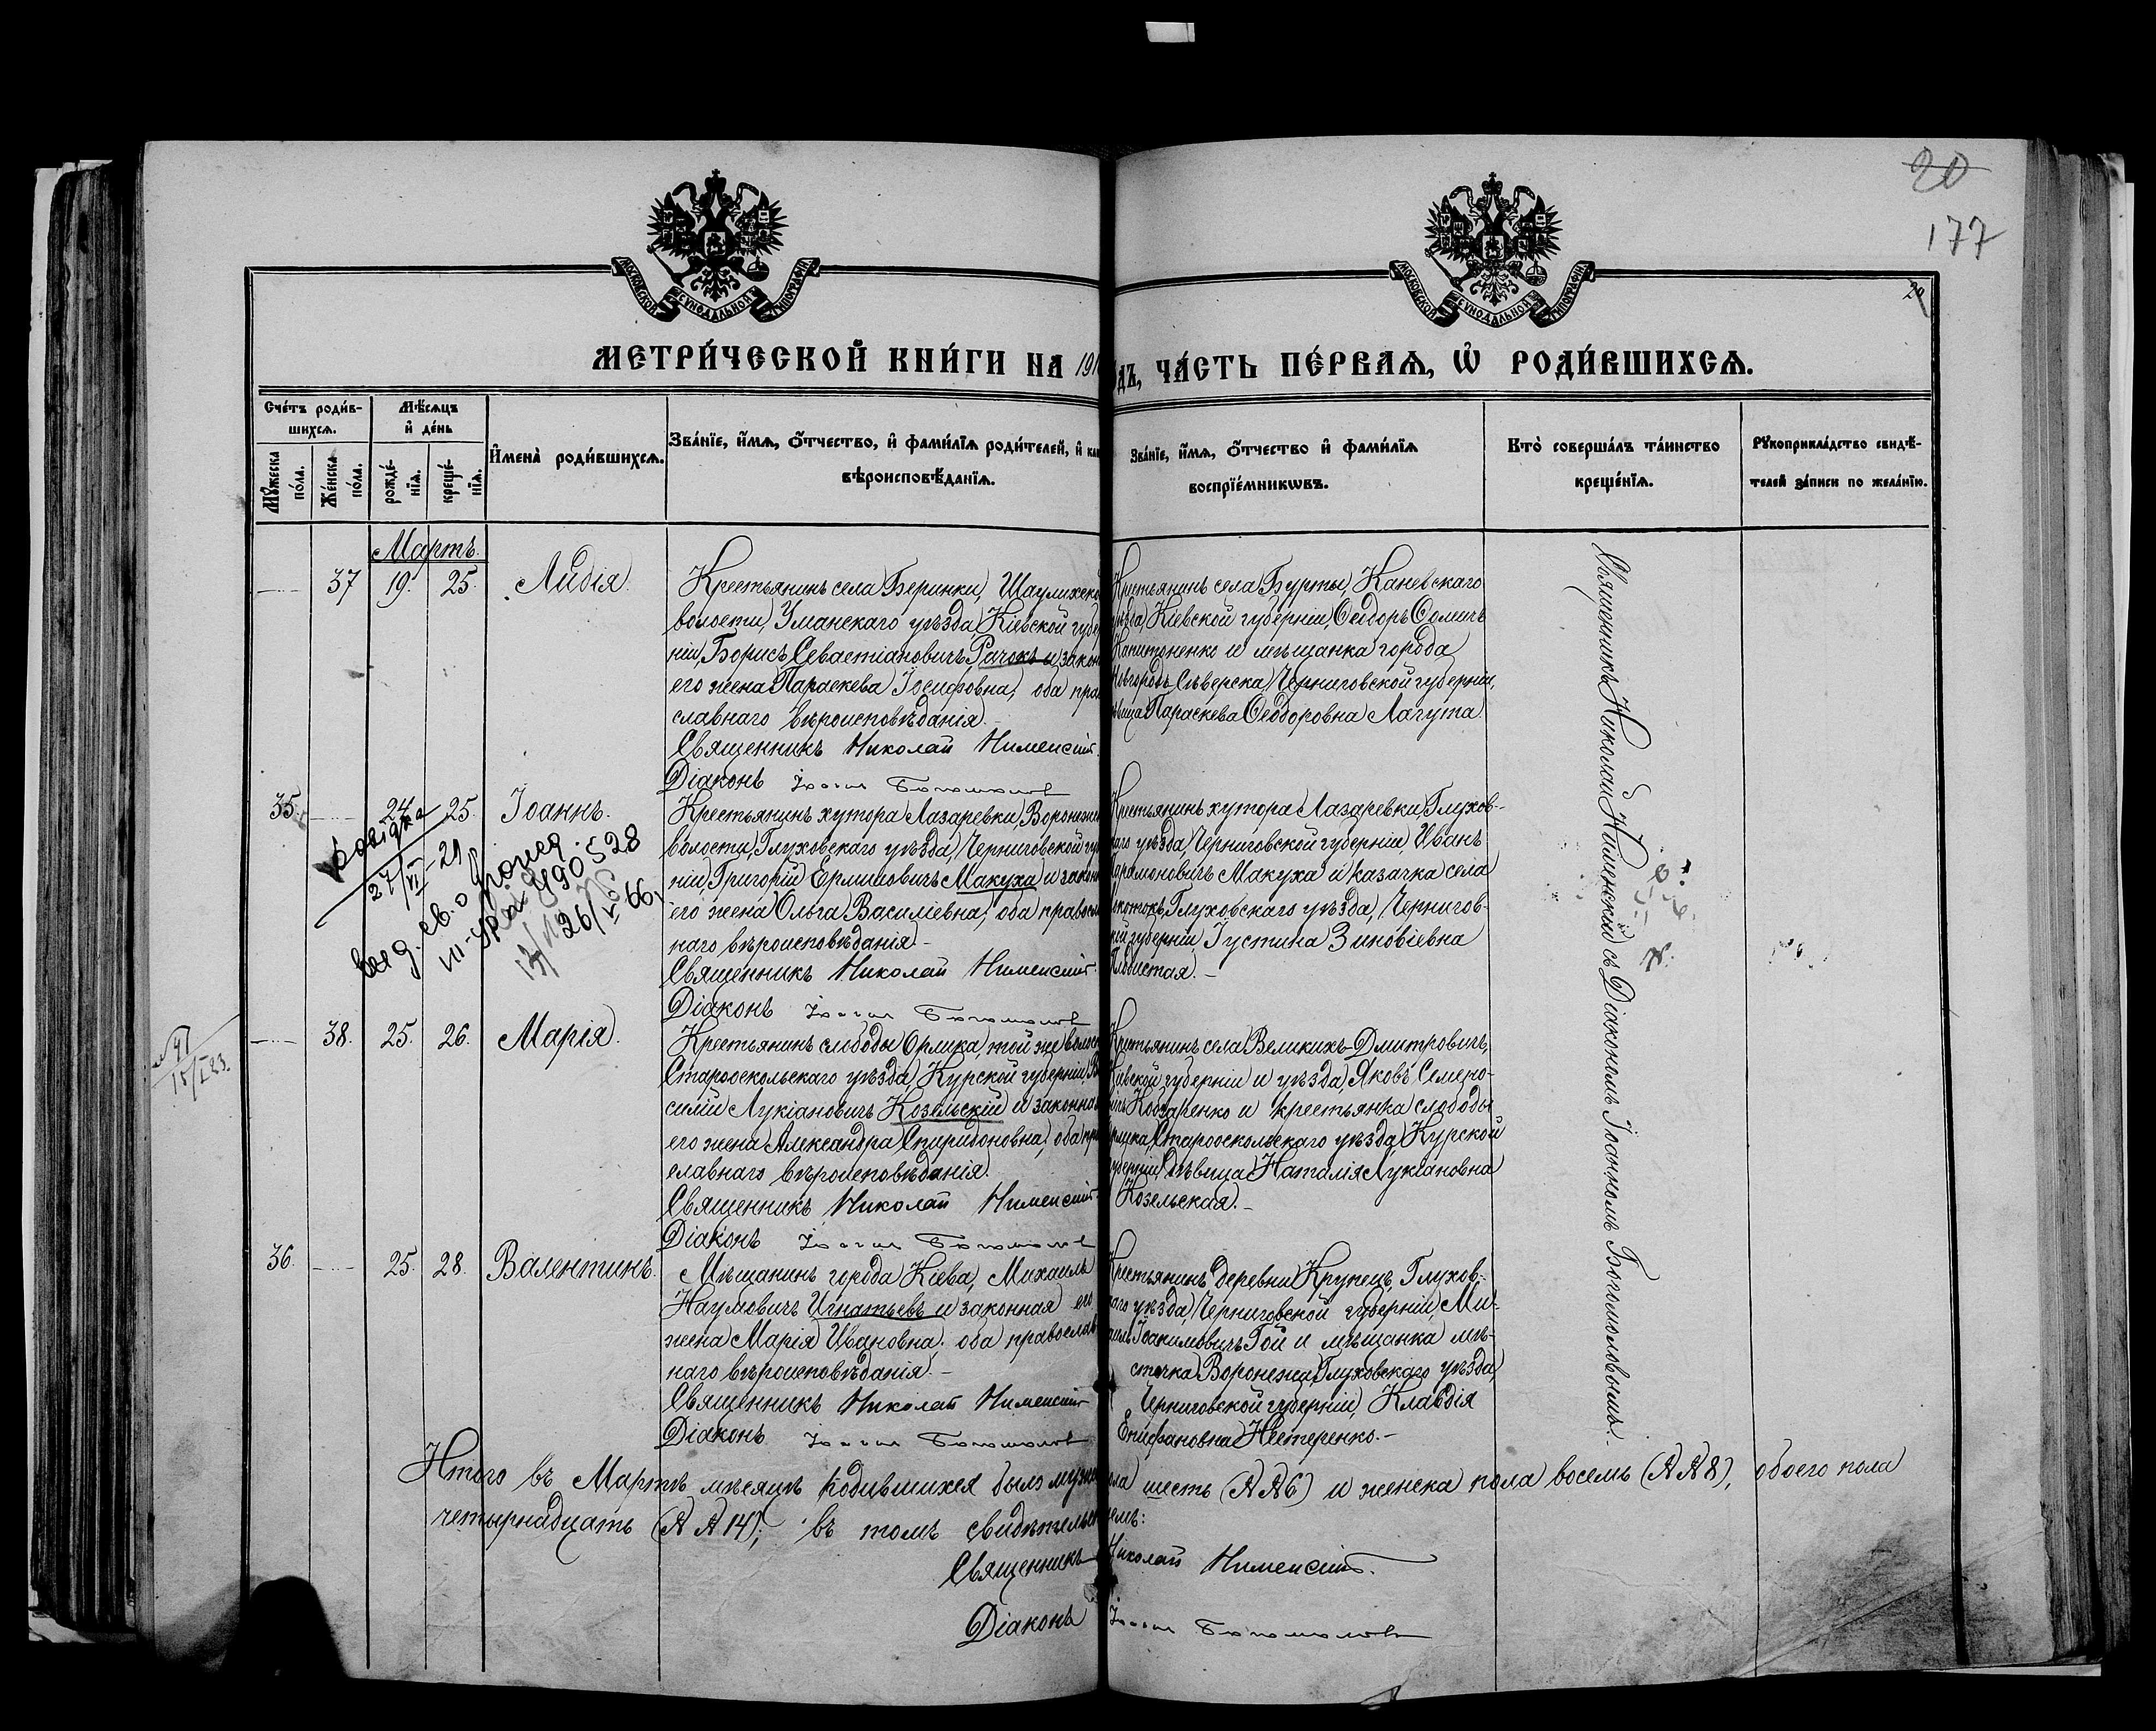 20
177
20
МОСКОВСКОЙ СУНОДАЛЬНОЙ ТИПОГРАФІИ
МОСКОВСКОЙ СУНОДАЛЬНОЙ ТИПОГРАФІИ
МЕТРИ́ЧЕСКОЙ КНИ́ГИ НА 191
ДЪ, ЧА́СТЬ ПЕ́РВАѦ, Ѡ҆ РОДИ́ВШИХСѦ.
Сче́тъ роди́в-
шихсѧ.
Мꙋ́жеска по́ла.
Же́нска по́ла.
Мѣ́сѧцъ
и҆ де́нь
рожде́-
нїѧ.
креще́-
нїѧ.
И҆мена̀ роди́вшихсѧ.
Зва́нїе, и҆́мѧ, ѻ҆́тчество, и҆ фами́лїѧ роди́телей, и҆ как
вѣроисповѣ́данїѧ.
Зва́нїе, и҆́мѧ, ѻ҆́тчество и҆ фами́лїѧ
воспрїе́мникѡвъ.
Кто̀ соверша́лъ та́инство
креще́нїѧ.
Рꙋкоприкла́дство свидѣ́-
телей за́писи по жела́нїю.
Мартъ.
37 19. 25. Лидія.
Крестьянинъ села Беринки,
волости, Уманскаго уѣзда, Кіевской губер
ніи, Борисъ Севастіановичъ Рачокъ и закон
его жена Параскева Іосифовна, оба пра
славнаго вѣроисповѣданія.
Священникъ Николай
Діаконъ
Крестьянинъ села Бурты, Каневскаго
уѣзда, Кіевской губерніи, Ѳеодоръ Ѳомичъ
Капитоненко и мѣщанка города
Новгородъ Сѣверска, Черниговской губерніи,
дѣвица Параскева Ѳеодоровна Лагута.
35. 24 25. Іоаннъ.
Довідка
27/VI-29
490528
26/V 66.
Крестьянинъ хутора Лазаревки, Воронежск
волости, Глуховскаго уѣзда, Черниговской губ
ніи, Григорій Ермиловичъ Макуха и закон
его жена Ольга Василіевна, оба правосл
наго вѣроисповѣданія.
Священникъ Николай
Діаконъ
Крестьянинъ хутора Лазаревки, Глухов-
скаго уѣзда Черниговской губерніи Иванъ
Парамоновичъ Макуха и казачка села
Локотокъ, Глуховскаго уѣзда, Чернигов-
кій губерніи, Іустина Зиновіевна
№ 47
15/I 23.
38. 25. 26. Марія.
Крестьянинъ слободы Орлика, той же волос
Старооскольскаго уѣзда, Курской губерніи, Ва
силій Лукіановичъ Козельскій и законная
его жена Александра Спиридоновна, оба пра
славнаго вѣроисповѣданія.
Священникъ Николай
Діаконъ
Крестьянинъ села Великихъ-Дмитровичъ,
Кіевской губерніи и уѣзда, Яковъ Семено-
вичъ Кобзаренко и крестьянка слободы
Орлика, Старооскольскаго уѣзда, Курской
губерніи, дѣвица Наталія Лукіановна
Козельская.
36. 25. 28. Валентинъ.
Мѣщанинъ города Кіева, Михаилъ
Наумовичъ Игнатьевъ и законная его
жена Марія Ивановна, оба православ
наго вѣроисповѣданія.
Священникъ Николай
Діаконъ
Крестьянинъ деревни Крупецъ, Глухов-
скаго уѣзда, Черниговской губерніи, Ми-
хаилъ Іоакимовичъ Гой и мѣщанка мѣ-
стечка Воронежа, Глуховскаго уѣзда,
Черниговской губерніи, Клавдія
Епифановна Нестеренко.
Священникъ Николай съ Діакономъ Іоанномъ Богомоловымъ.
Итого въ Мартѣ мѣсяцѣ родившихся было мужеска пола шесть (№№ 6) и женска пола восемь (№№ 8), обоего пола
четырнадцать (№№ 14); въ томъ свидѣтельствуемъ:
Священникъ Николай
Діаконъ